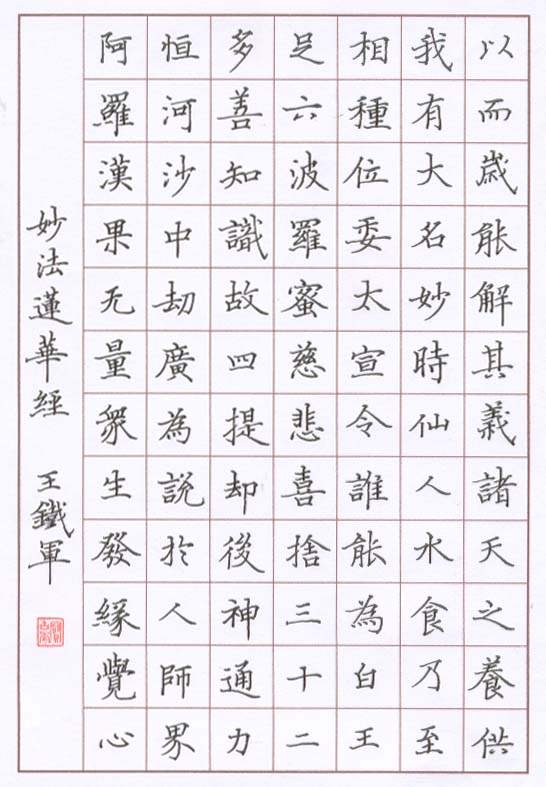 以而歲能解其義諸天之養供
我有大名妙時仙人水食乃至
相種位委太宣令誰能為白王
足六波羅蜜慈悲喜捨三十二
多善知識故四提却後神通力
恒河沙中劫廣為說於人師界
阿羅漢果无量眾生發緣覺心
妙法蓮華經 王鐵軍